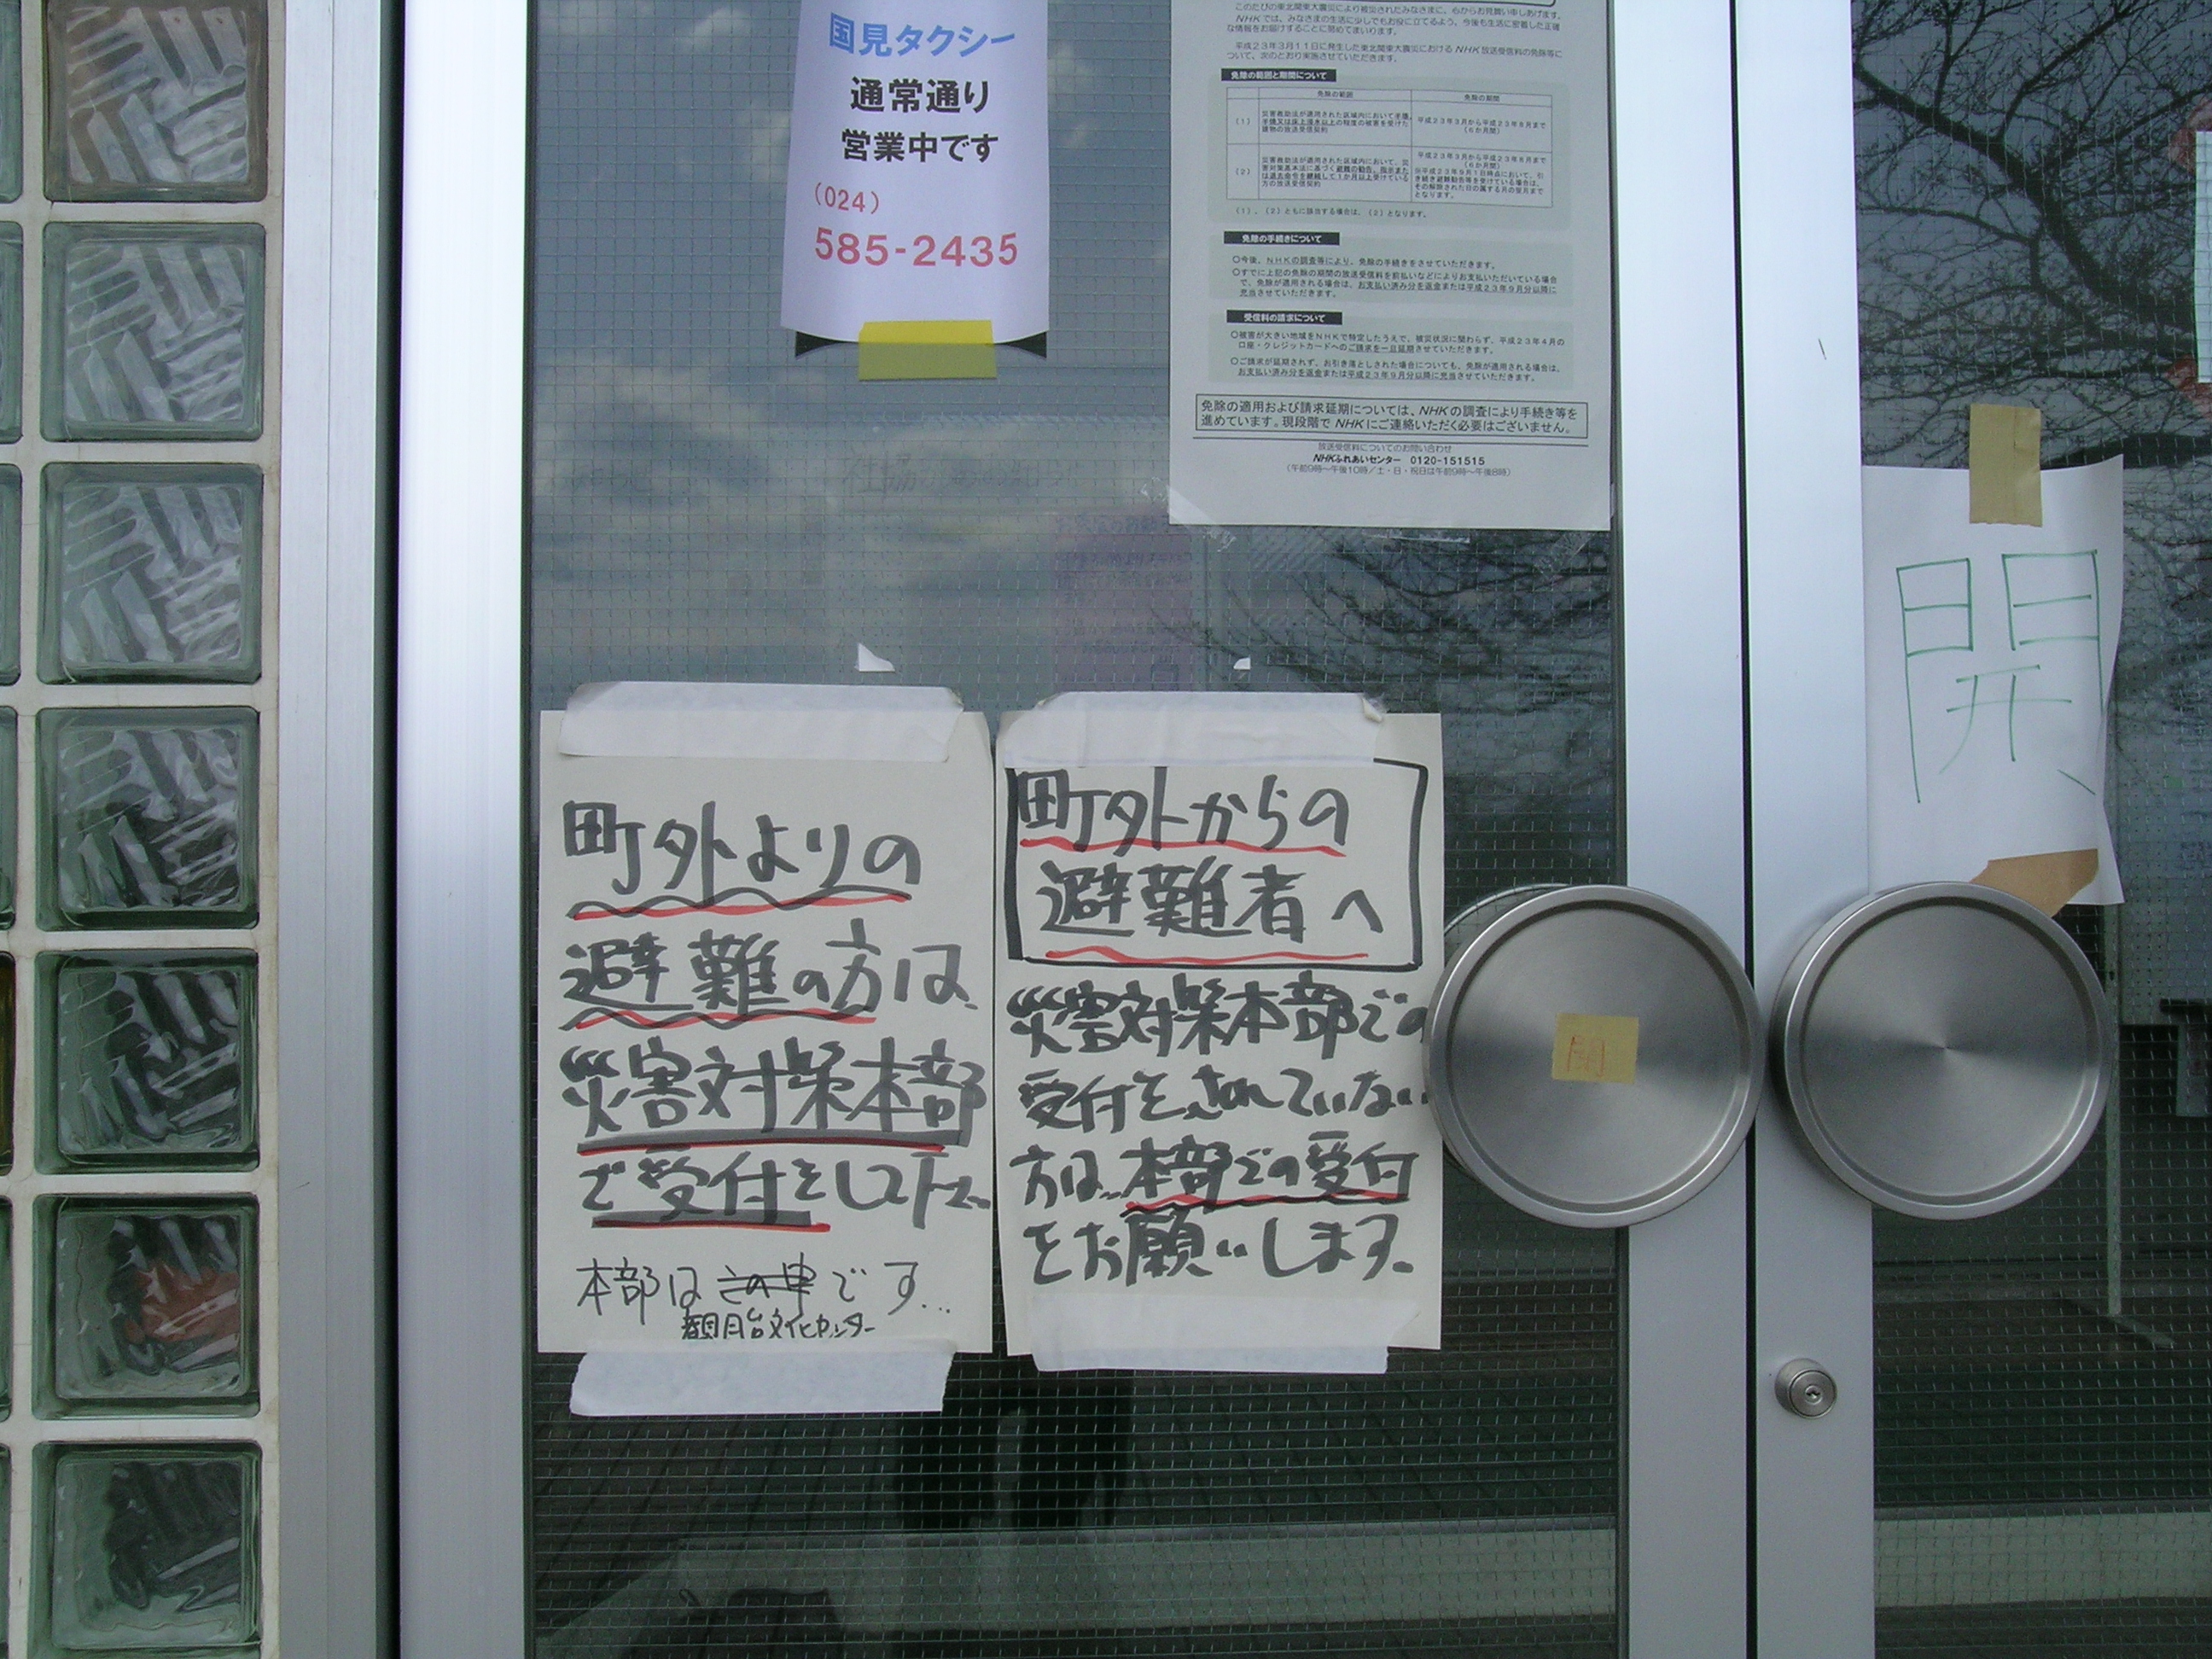 国見タクシー
通常通り
営業中です
(024)
585-2435
このたびの東北関東大震災により被災されたみなさまに、心からお見舞い申しあげます。
NHKでは、みなさまの生活に少しでもお役に立てるよう、今後も生活に密着した正確
な情報をお届けすることに努めてまいります。
平成23年3月11日に発生した東北関東大震災におけるNHK放送受信料の免除等に
ついて、次のとおり実施させていただきます。
免除の範囲と期間について
免除の範囲
免除の期間
(1)
災害救助法が適用された区域内において半壊、
半焼又は床上浸水以上の程度の被害を受けた
建物の放送受信契約
平成23年3月から平成23年8月まで
(6か月間)
(2)
災害救助法が適用された区域内において、災
害対策基本法に基づく避難の勧告、指示また
は退去命令を継続して1か月以上受けている
方の放送受信契約
平成23年3月から平成23年8月まで
(6か月間)
※平成23年9月1日時点において、引
き続き避難勧告等を受けている場合は、
その解除された日の属する月の翌月まで
となります。
(1)、(2)ともに該当する場合は、(2)となります。
免除の手続きについて
○今後、NHKの調査等により、免除の手続きをさせていただきます。
○すでに上記の免除の期間の放送受信料を前払いなどによりお支払いただいている場合
で、免除が適用される場合は、お支払い済み分を返金または平成23年9月分以降に
充当させていただきます。
受信料の請求について
○被害が大きい地域をNHKで特定したうえで、被災状況に関わらず、平成23年4月の
口座・クレジットカードへのご請求を一旦延期させていただきます。
○ご請求が延期されず、お引き落としされた場合についても、免除が適用される場合は、
お支払い済み分を返金または平成23年9月分以降に充当させていただきます。
免除の適用および請求延期については、NHKの調査により手続き等を
進めています。現段階でNHKにご連絡いただく必要はございません。
放送受信料についてのお問い合わせ
NHKふれあいセンター 0120-151515
(午前9時〜午後10時/土・日・祝日は午前9時〜午後8時)
開
町外よりの
避難の方は、
災害対策本部
で受付をして下さい
本部はこの中です…
観月台文化センター
町外からの
避難者へ
災害対策本部での
受付をされていない
方は、本部での受付
をお願いします。
開